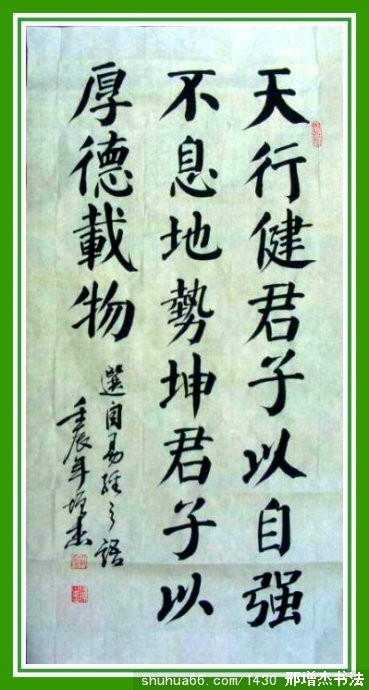 天行健君子以自强
不息地勢坤君子以
厚德載物
選自易經之語
壬辰年增杰
shuhua66.com/1430 邢增杰书法